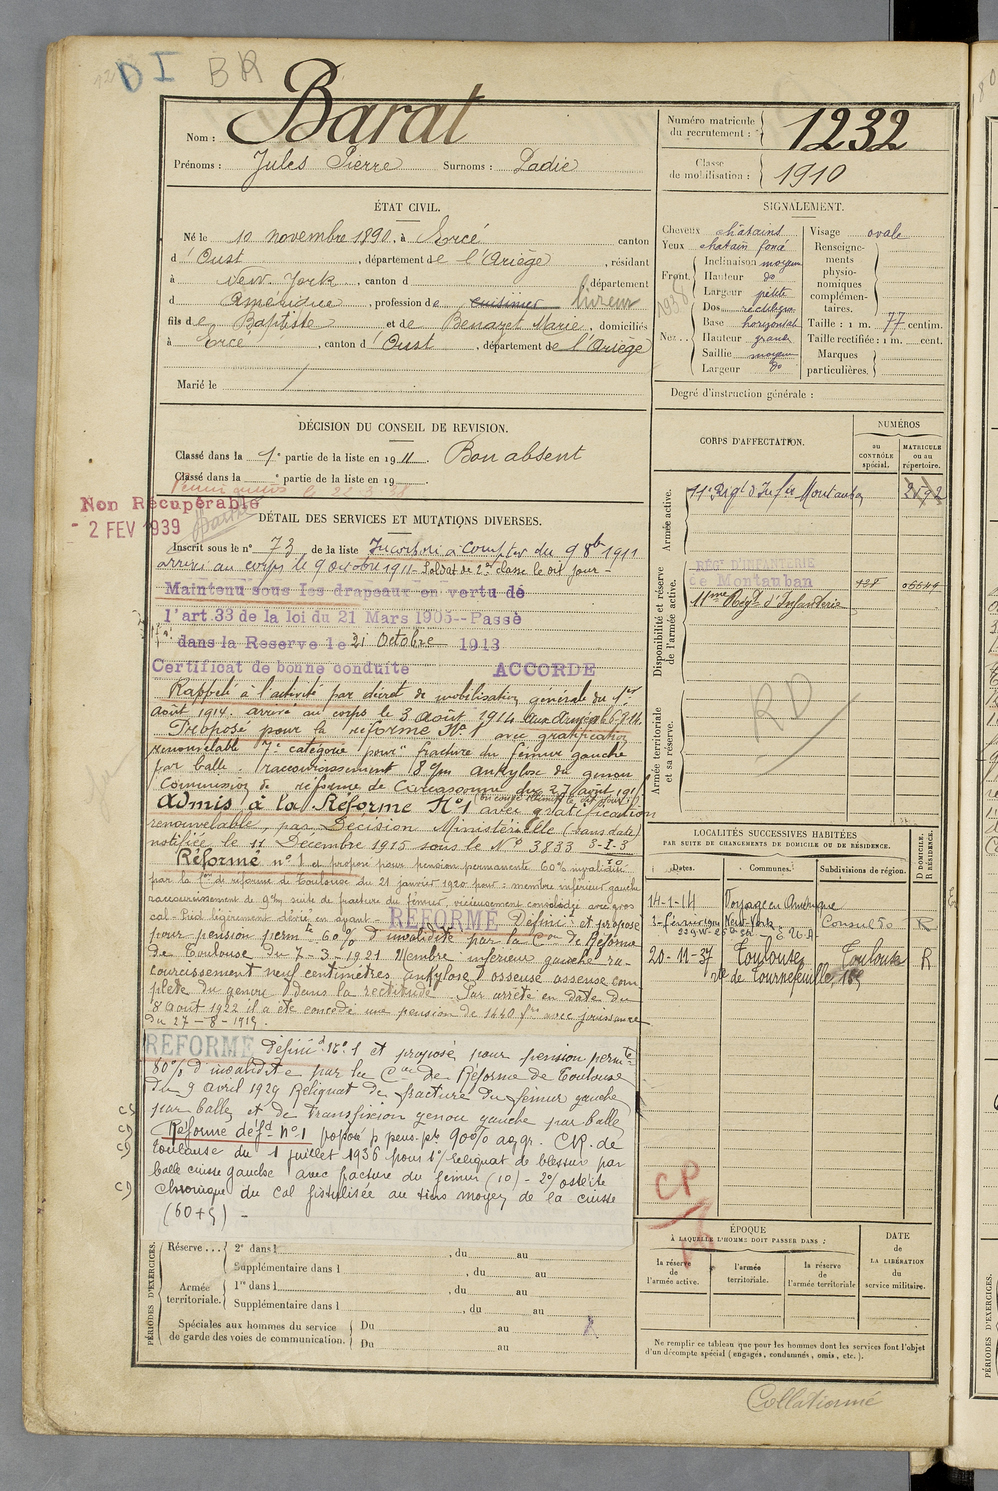 DI BR
Nom : Barat
Prénoms : Jules Pierre Surnoms : Ladie
Numéro matricule du recrutement : 1232
Classe de mobilisation : 1910
ÉTAT CIVIL.
Né le 10 novembre 1890, à Ercé canton
d'Oust, département de l'Ariège, résidant
à New-York, canton d département
d Amérique, profession de cuisinier livreur
fils de Baptiste et de Benazet Marie, domiciliés
à Ercé, canton d'Oust, département de l'Ariège
Marié le
SIGNALEMENT.
Cheveux châtains
Yeux chatain foncé
Front. Inclinaison moyenne
Hauteur do
Largeur petite
Nez... Dos rectiligne
Base horizontal
Hauteur grande
Saillie moyen
Largeur do
1938
Visage ovale
Renseignements physionomiques complémentaires.
Taille : 1 m. 77 centim.
Taille rectifiée : 1 m. cent.
Marques particulières.
Degré d'instruction générale :
DÉCISION DU CONSEIL DE REVISION.
Classé dans la 1e partie de la liste en 1911. Bon absent
Classé dans la e partie de la liste en 19
Non Récupérable
- 2 FEV 1939
DÉTAIL DES SERVICES ET MUTATIONS DIVERSES.
Inscrit sous le n° 73 de la liste Incorporé à compter du 9 8bre 1911
arrivé au corps le 9 octobre 1911 - Soldat de 2e classe le dit jour -
Maintenu sous les drapeaux en vertu de
l'art.33 de la loi du 21 Mars 1905--Passé
dans la Reserve le 21 Octobre 1913
Certificat de bonne conduite ACCORDE
Rappelé à l'activité par décret de mobilisation générale du 1er
Août 1914. arrivé au corps le 3 Août 1914 Aux armées
Proposé pour la réforme N°1 avec gratification
renouvelable 7e catégorie pour "fracture du fémur gauche
par balle. raccourcissement 8 c/m ankylose du genou
Commission de réforme de Carcassonne du 27 août 191
Admis à la Réforme N°1 avec gratification
renouvelable, par Décision Ministérielle (sans date)
notifiée le 11 Décembre 1915 sous le N° 3833
Réformé n° 1 et proposé pour pension permanente 60% invalidité
par la Con de réforme de Toulouse du 21 janvier 1920 pour : membre inférieur gauche
raccourcissement de 9cm suite de fracture du fémur, vicieusement consolidée avec gros
cal - Pied légèrement dévié en avant - REFORME Définif et proposé
pour pension permte 60% d'invalidité par la Con de Réforme
de Toulouse du 7-3-1921 Membre inférieur gauche ra-
courcissement neuf centimètres ankylose osseuse com
plète du genou dans la rectitude - Par arrêté en date du
8 Août 1922 il a été concédé une pension de 1440 frs avec jouissance
du 27-8-1919.
REFORME Définif N° 1 et proposé pour pension permte
80% d'invalidité par la Con de Réforme de Toulouse
du 9 avril 1929 Reliquat de fracture du fémur gauche
par balle et de transfixion genou gauche par balle
Réformé déf N°1 proposé p pens. pte 90% aggr. CR. de
Toulouse du 1 juillet 1936 pour 1°/ reliquat de blessure par
balle cuisse gauche avec fracture du fémur (10) - 2°/ ostéite
chronique du cal fistulisée au tiers moyen de la cuisse
(60+5) -
CORPS D'AFFECTATION.
NUMÉROS
au CONTRÔLE spécial.
MATRICULE ou au répertoire.
Armée active.
11e Régt d'Infie Montauban 2192
Disponibilité et réserve de l'armée active.
RÉGt D'INFANTERIE
de Montauban
11me Régt d'Infanterie
Armée territoriale et sa réserve.
RD
LOCALITÉS SUCCESSIVES HABITÉES
PAR SUITE DE CHANGEMENTS DE DOMICILE OU DE RÉSIDENCE.
Dates. Communes. Subdivisions de région. D DOMICILE. R RÉSIDENCE.
14-1-14 Voyage en Amérique
New-York Consulto R
E U A
20-11-37 Toulouse Toulouse R
rte de Tournefeuille,
CP
ÉPOQUE
À LAQUELLE L'HOMME DOIT PASSER DANS :
la réserve de l'armée active.
l'armée territoriale.
la réserve de l'armée territoriale
DATE de LA LIBÉRATION du service militaire.
Ne remplir ce tableau que pour les hommes dont les services font l'objet
d'un décompte spécial (engagés, condamnés, omis, etc.).
PÉRIODES D'EXERCICES.
Réserve... 2e dans l , du au
Supplémentaire dans l , du au
Armée territoriale. 1re dans l , du au
Supplémentaire dans l , du au
Spéciales aux hommes du service
de garde des voies de communication. Du au
Du au
Collationné
PÉRIODES D'EXERCICES.